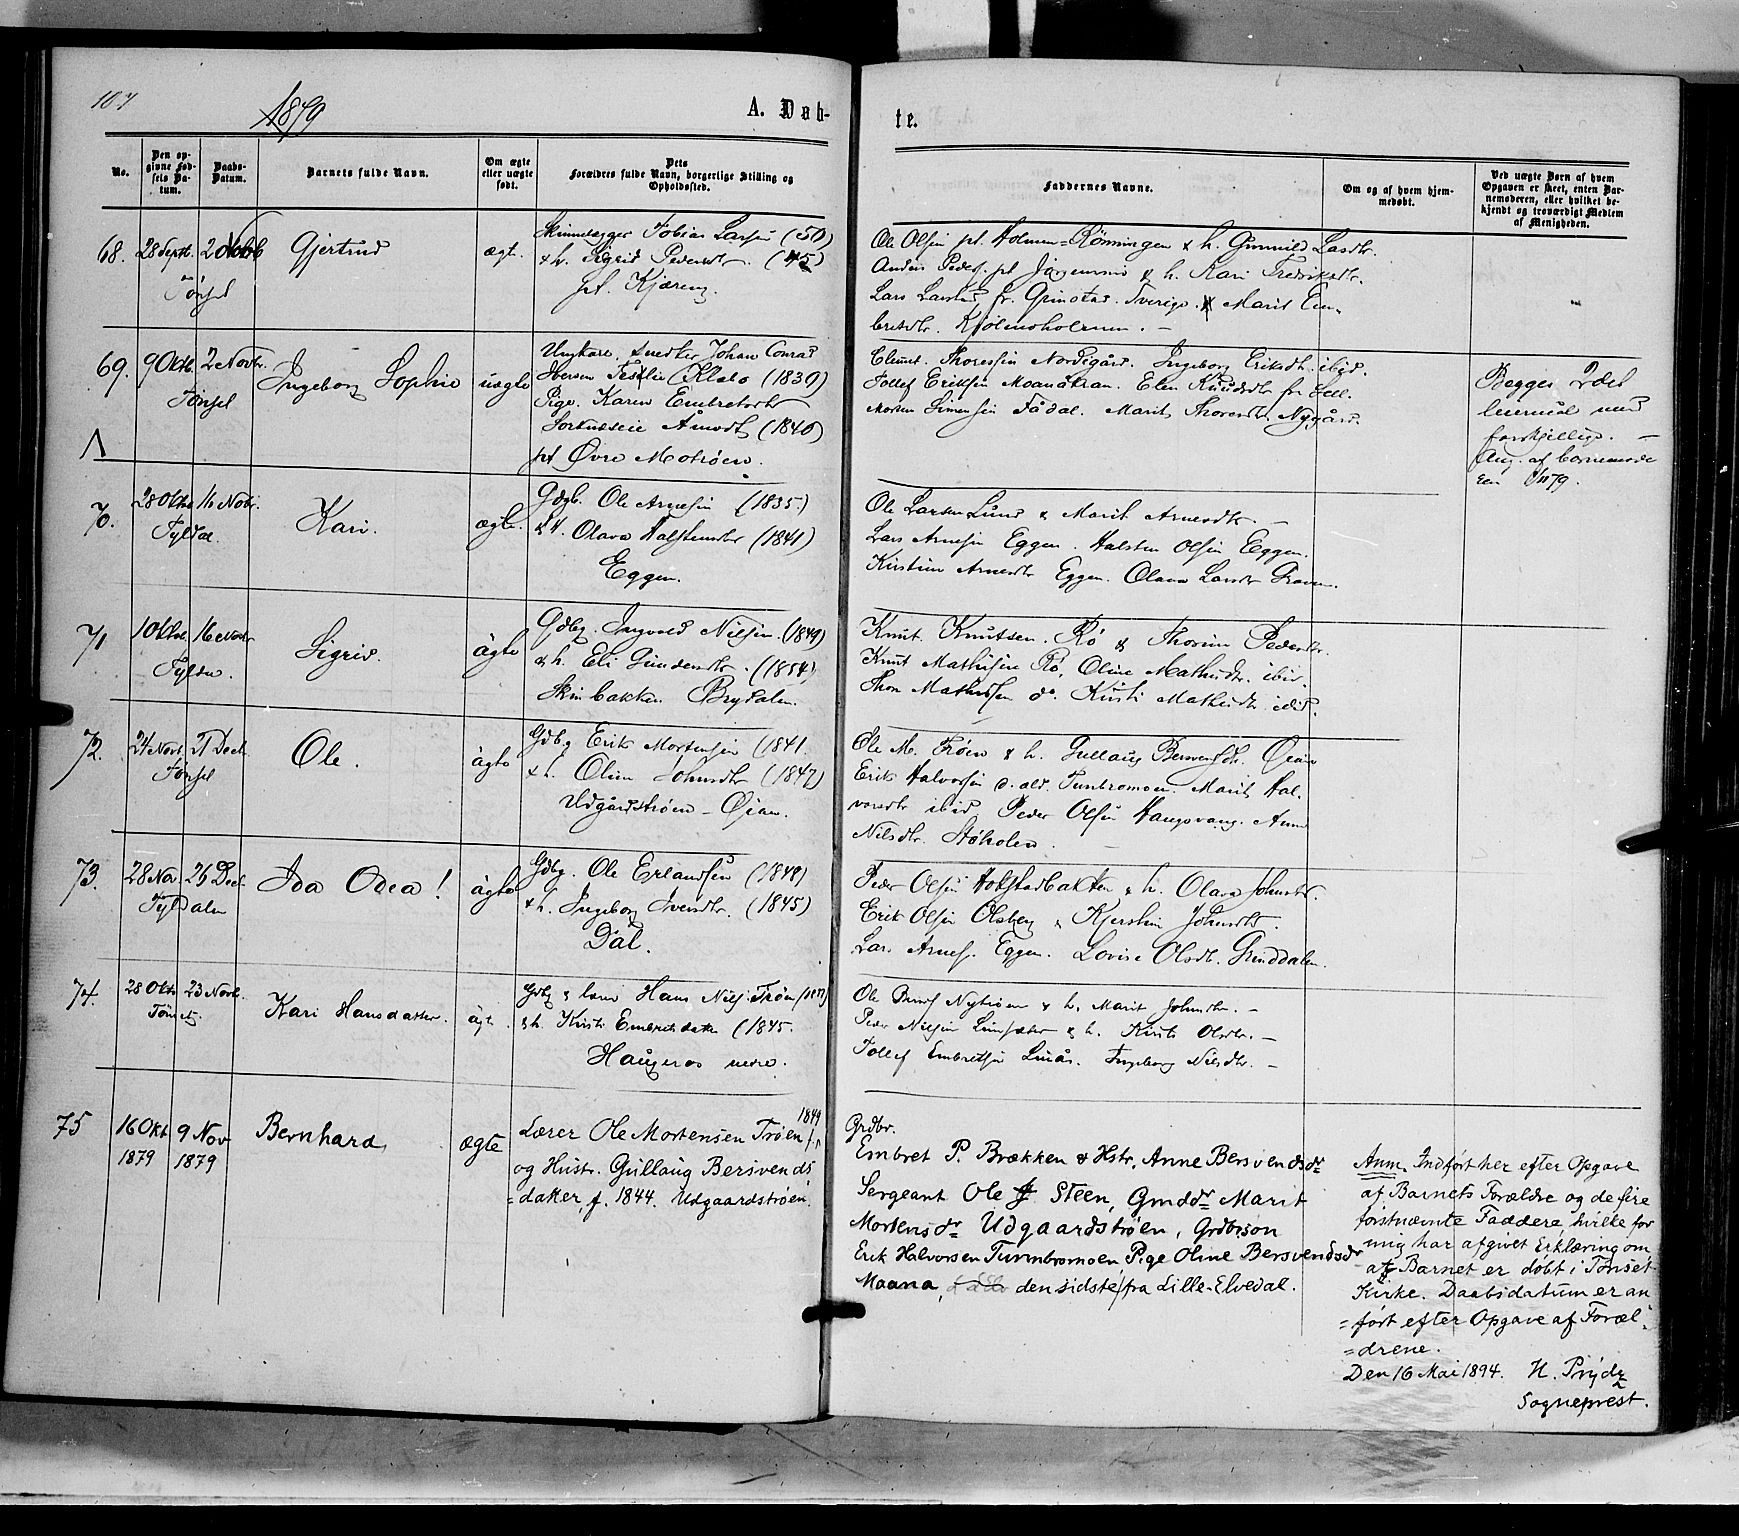 107
1879
A. Døb-
te.
No.
Den op-
givne Fød-
sels Da-
tum.
Daabs-
Datum.
Barnets fulde Navn.
Om ægte
eller uægte
født.
Dets
Forældres fulde Navn, borgerlige Stilling og
Opholdssted.
Faddernes Navne.
Om og af hvem hjem-
medøbt.
Ved uægte Børn af hvem
Opgaven er skeet, enten Bar-
nemoderen, eller hvilket be-
kjendt og troværdigt Medlem
af Menigheden.
68. 28 Septb. 2 Novb Gjertrud ægt.
Tønset
Tobias Larsen (50)
& h. Sigrid Pedersdtr. (45)
pt. Kjæreng.
Ole Olsen pt. Holmen-Rønningen & h. Gunnild Larsdtr.
Anders Peders. pt & h. Kari Fredriksdtr.
Lars fr. Sverige. & Marit Em-
bretsdtr. Kjølmoholmen. -
69. 9 Oktb. 2 Novbr. Ingeborg Sophie uægte
Tønset
Ungkarl, Johan Conrad
Iversen Klæbo (1839)
Pige Karen Embretsdtr
Åmodt (1840)
pt Øvre Motrøen.
Clemet Thoresen Nordigård. Ingeborg Eriksdtr. ibid.
Tollef Eriksen Moanåkran. Elen Knudsdtr fr. Lill.
Morten Simensen Fådal. Marit Thoresdtr. Nygård.
Begges 2det
leiermål med
forskjellige. -
Ang. af barnemode
ren /11 79.
70. 28 Oktb 16 Novbr. Kari. ægte.
Tyldal
Gdbg. Ole Arnesen (1835)
& h. Olava Halstensdtr (1841)
Eggen.
Ole Larsen Lund & Marit Arnesdtr. -
Lars Arnesen Eggen. Halsten Olsen Eggen.
Kirstine Arnesdtr Eggen. Olava Larsdtr
71 1 Oktbr. 16 Novbr Sigrid. ägte
Tyldal.
Gdbg. Ingvald Nilsen. (1849)
& h. Eli (1854)
Brydalen.
Knut Knutsen. Rø & Thorine Pedersdtr.
Knut Mathisen Rø, Oline Mathisdtr. ibid.
Thore Mathisen do. Kirsti Mathisdtr ibid.
72. 24 Novb. 21 Decb. Ole. ägte
Tønset
Gdbg Erik Mortensen (1841.
& h. Oline Johnsdtr (1847)
Udgårdstrøen - Øian.
Ole M. Trøen & h. Gullaug Bersvendsdtr. Øian
Erik Halvorsen Tunbromoen. Marit Hal-
vorsdtr ibid Peder Olsen Haugsvang. Anne
Nilsdtr. Støholen.
73. 28 Nov. 26 Decb. Ida Odea! ägte
Tyldalen
Gdbg. Ole Erlandsen (1848)
& h. Ingeborg Iversdtr. (1845)
Dal.
Peder Olsen Hokstadbakken & h. Olava Johnsdtr.
Erik Olsen Olsberg & Kjerstine Johnsdtr.
Lars Arnes. Eggen. Lovise Olsdtr. Grinddalen.
74. 28 Oktb 23 Novb. Kari Hansdatter. ägt.
Tønset
Gdbg & lærer Hans Nils. Trøen
& h. Kirsti Embretsdatter (1845.
Haugeros nedre.
Ole Nytrøen & h. Marit Johnsdtr. -
Peder Nilsen & h. Kirsti Olsdtr. -
Tollef Embretsen Småås. Ingeborg Nilsdtr. -
75 16 Okt 9 Nov Bernhard, ægte
1879 1879
1849
Lærer Ole Mortensen Trøen f.
og Hustr. Gullaug Bersvends
=datter, f. 1844. Udgaardstrøen.
Grdbr.
Embret P. Brækken & Hstr, Anne Bersvendsdr
Sergeant Ole J Steen, Gmddr Marit
Mortensdr Udgaardstrøen, Grdbrsøn
Erik Halvorsen Tunnbromoen Pige Oline Bersvendsdr
Moana, den sidste fra Lille-Elvedal.
Anm. Indført her efter Opgave
af Barnets Forældre og de fire
førstnævnte Faddere, hvilke for
mig har afgivet Erklæring om,
at Barnet er døbt i Tønset
Kirke. Daabsdatum er an
=ført efter Opgave af Foræl-
=drene.
Den 16 Mai 1894. H. Prydz
Sogneprest.